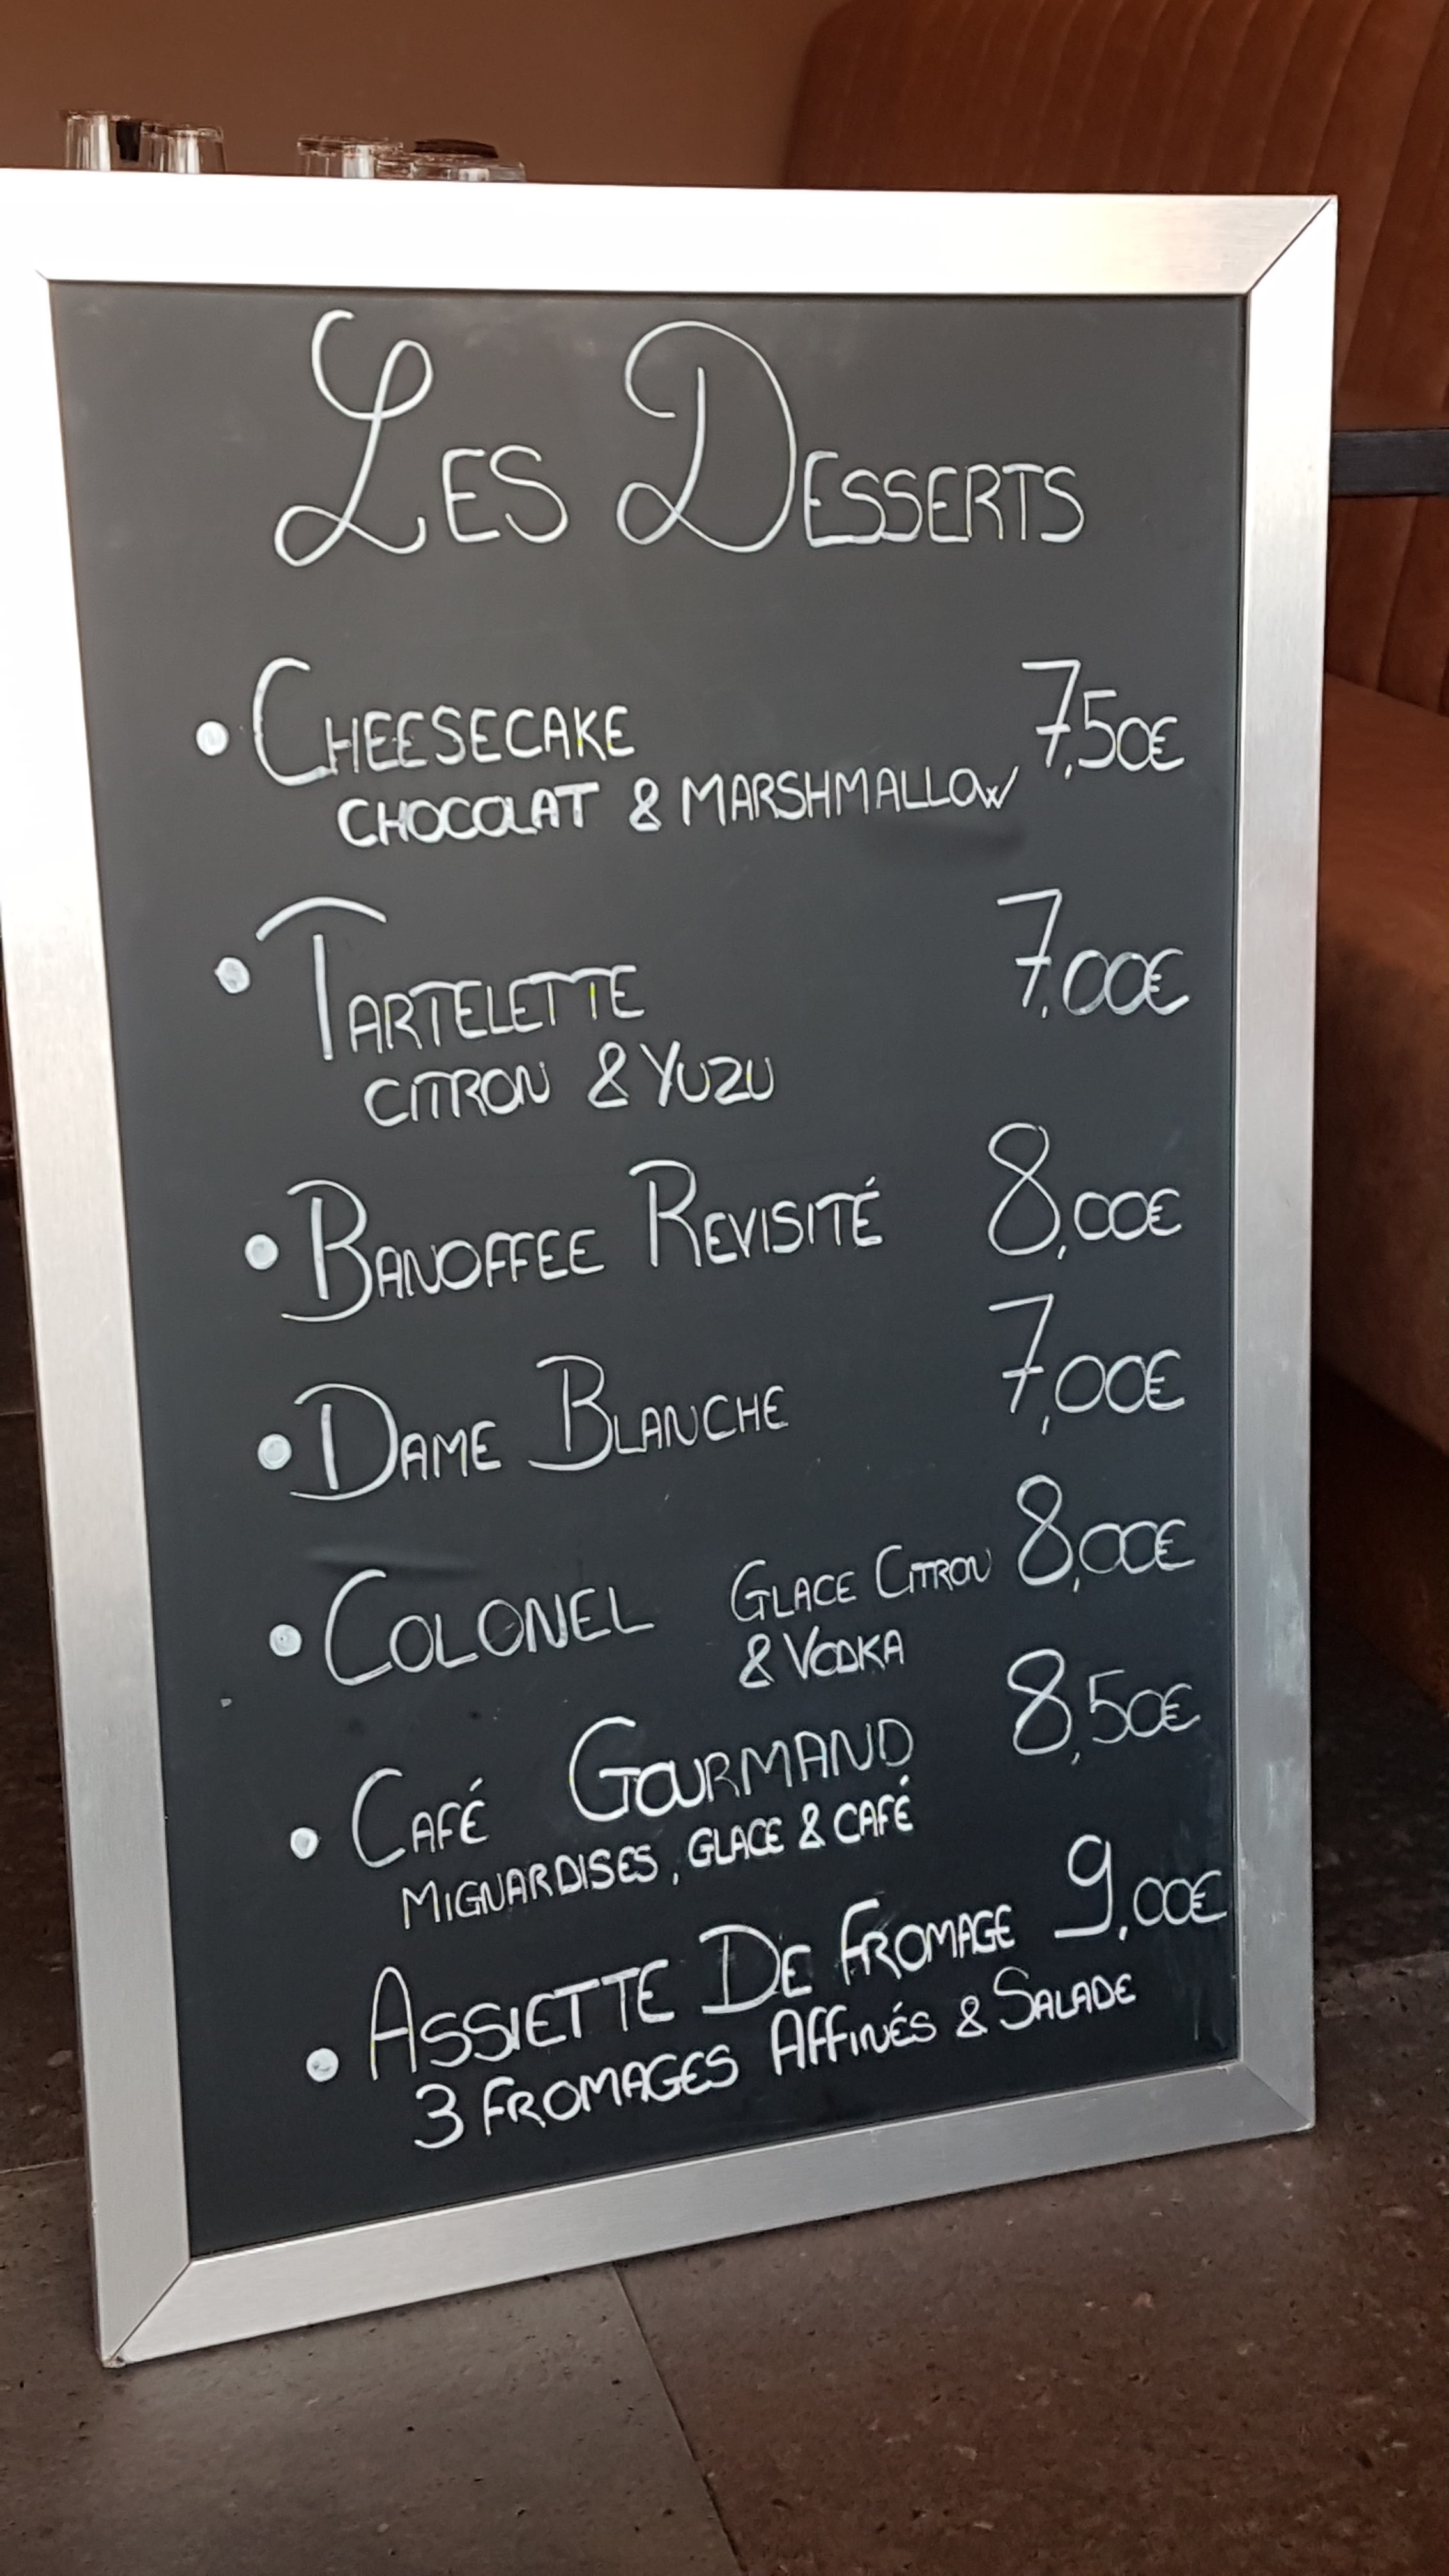 Les Desserts
• Cheesecake 7,50€
chocolat & marshmallow
• Tartelette 7,00€
citron & yuzu
• Banoffee Revisité 8,00€
• Dame Blanche 7,00€
• Colonel Glace Citron 8,00€
& Vodka
• Café Gourmand 8,50€
Mignardises, glace & café
• Assiette De Fromage 9,00€
3 fromages Affinés & Salade